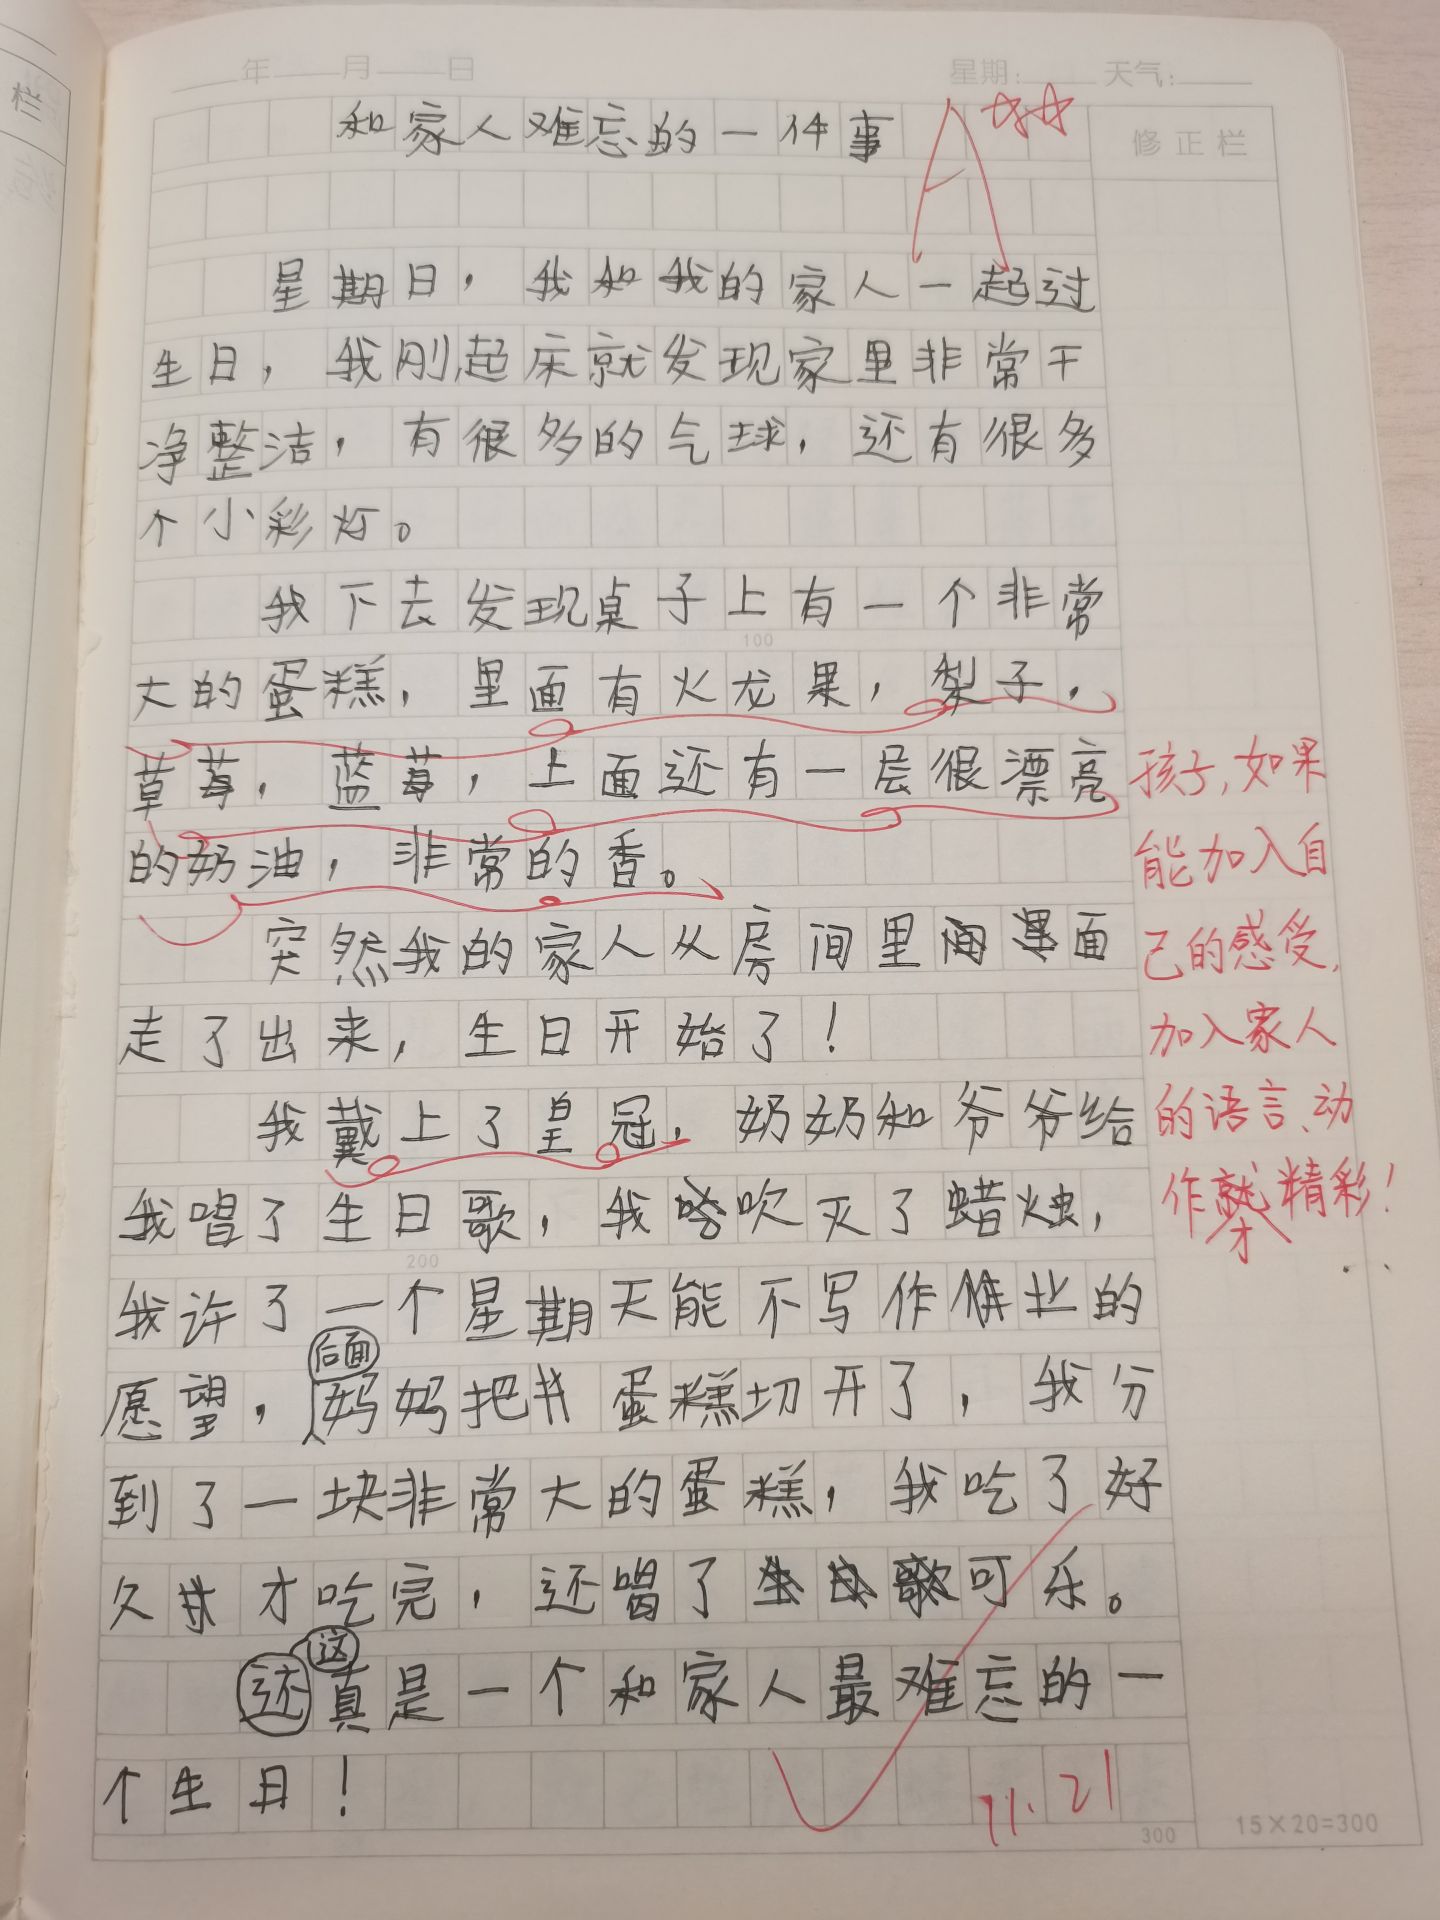 年 月 日 星期: 天气:
和家人难忘的一件事
A ☆☆
修正栏
星期日，我和我的家人一起过
生日，我刚起床就发现家里非常干
净整洁，有很多的气球，还有很多
个小彩灯。
我下去发现桌子上有一个非常
100
大的蛋糕，里面有火龙果，梨子，
草莓，蓝莓，上面还有一层很漂亮
的奶油，非常的香。
突然我的家人从房间里面
走了出来，生日开始了！
我戴上了皇冠，奶奶和爷爷给
我唱了生日歌，我吹灭了蜡烛，
200
我许了一个星期天能不写作业的
愿望，后面妈妈把蛋糕切开了，我分
到了一块非常大的蛋糕，我吃了好
久才吃完，还喝了可乐。
这真是一个和家人最难忘的一
个生日！
11.21
300
15×20=300
孩子，如果
能加入自
己的感受，
加入家人
的语言、动
作就才精彩！
栏